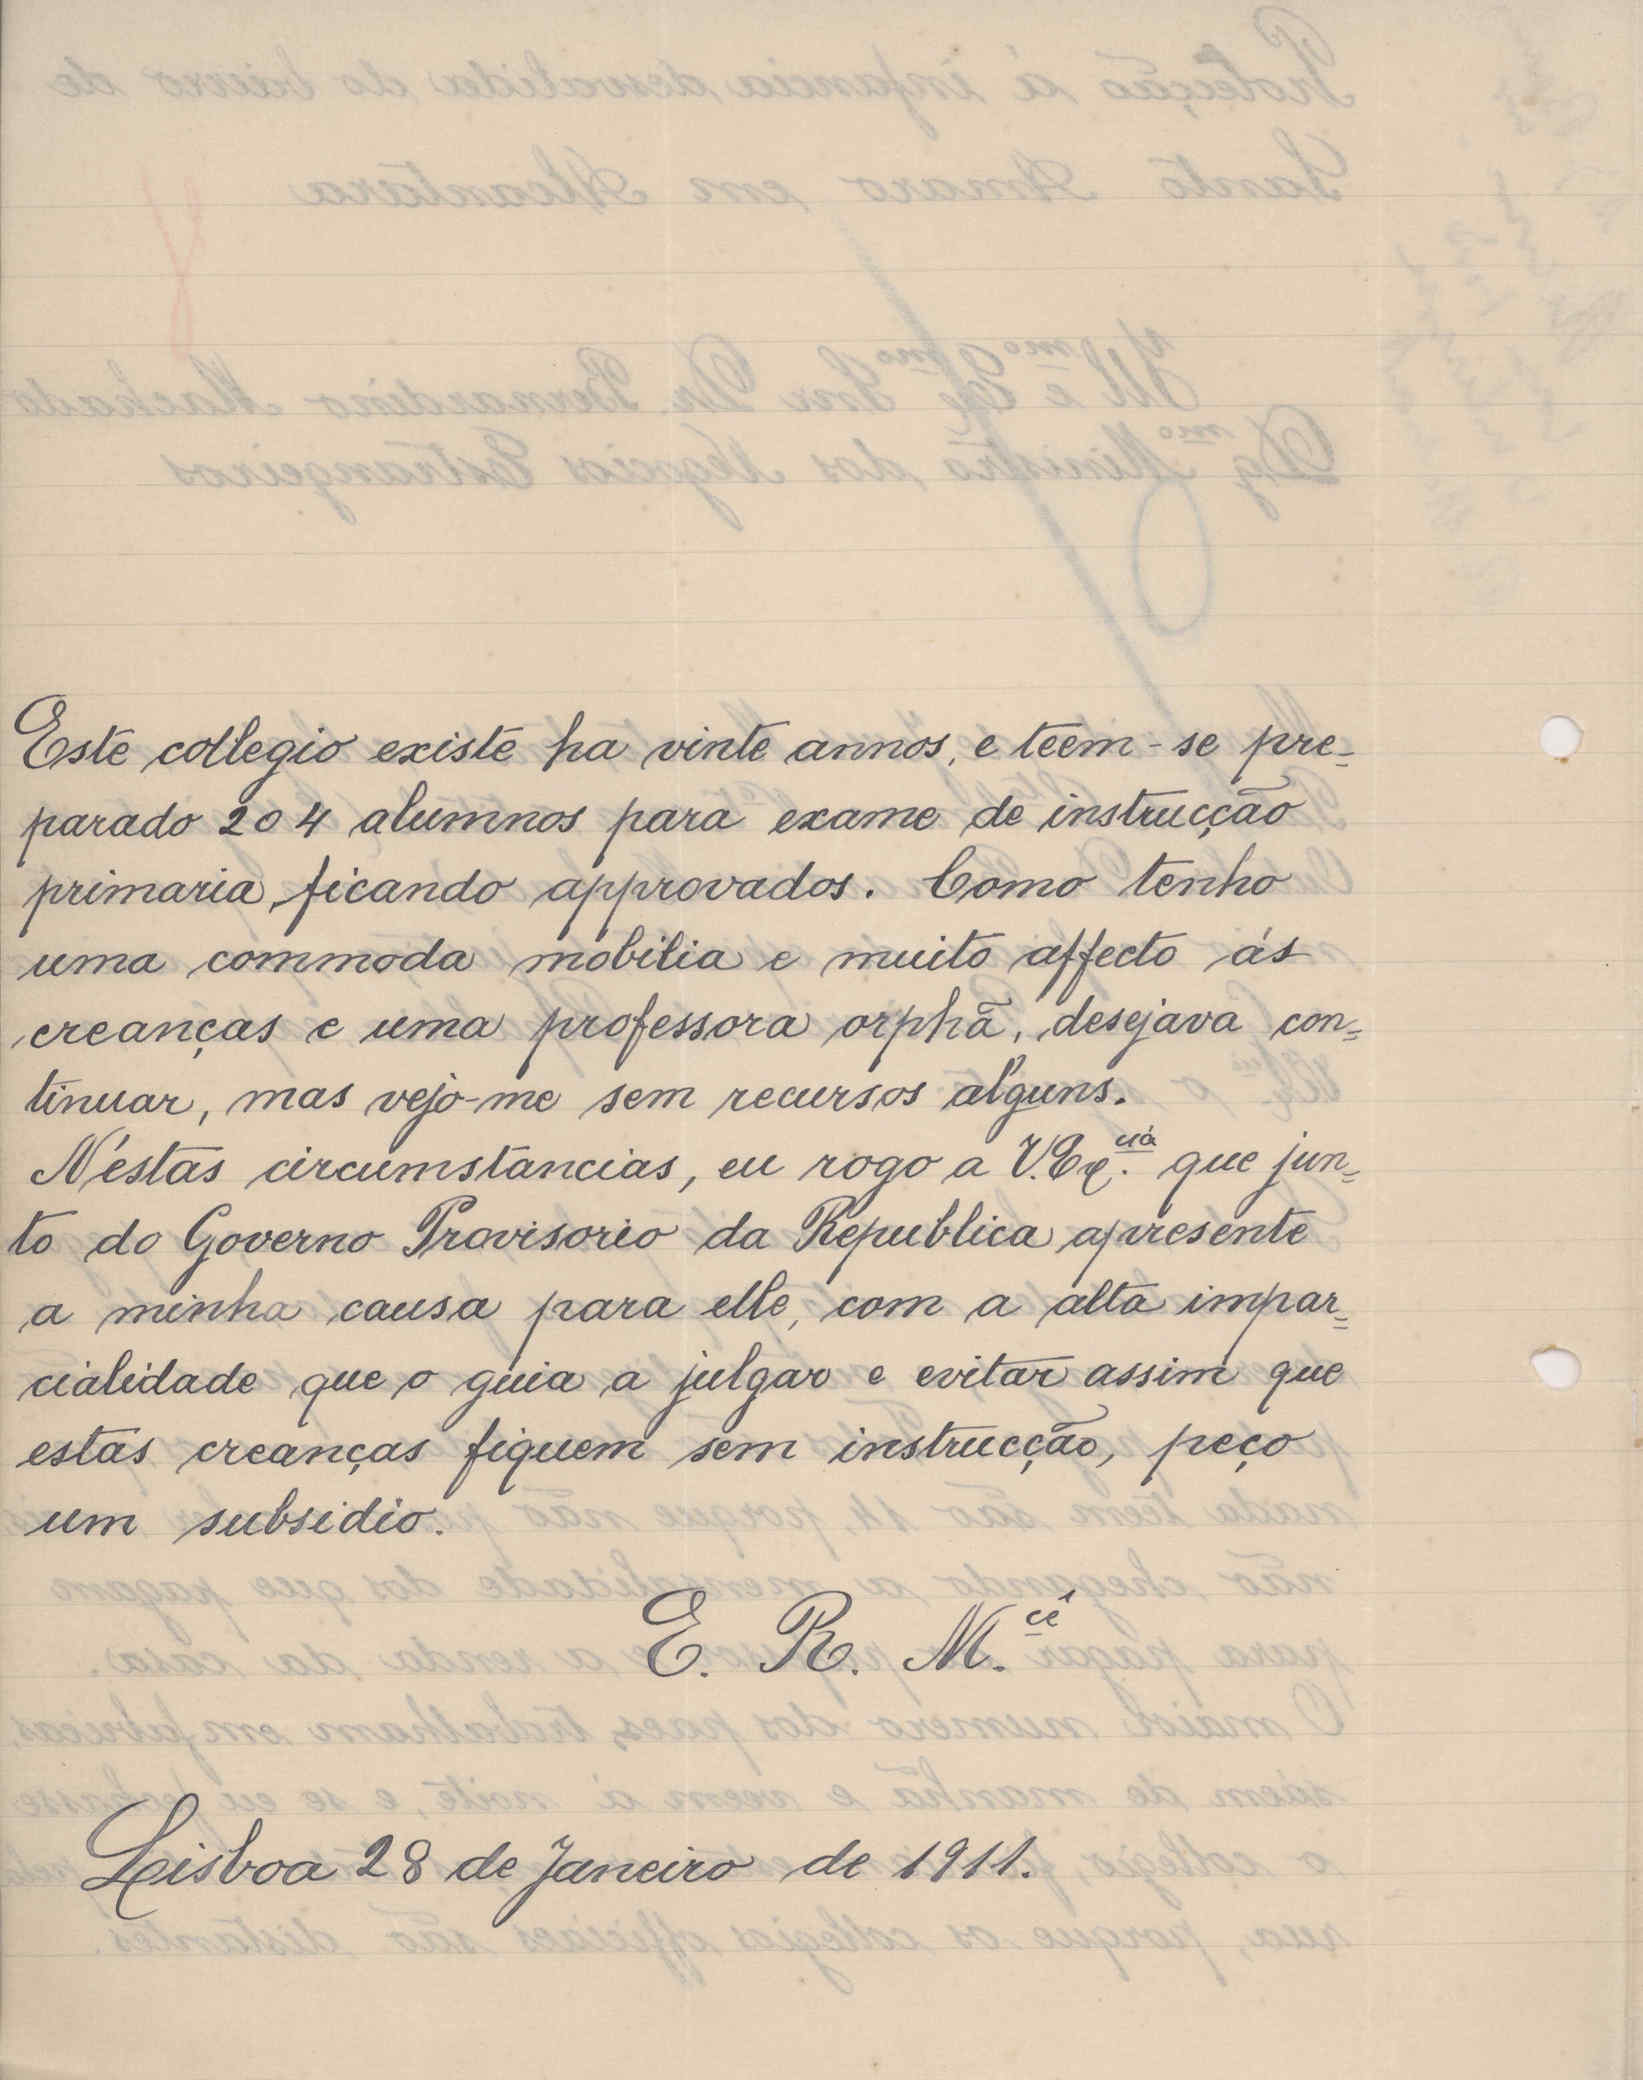 Este collegio existe ha vinte annos, e teem-se pre-
parado 204 alumnos para exame de instrucção
primaria, ficando approvados. Como tenho
uma commoda mobilia e muito affecto ás
creanças e uma professora orphã, desejava con-
tinuar, mas vejo-me sem recursos alguns.
N'éstas circumstancias, eu rogo a V. Ex.cia que jun-
to do Governo Provisorio da Republica apresente
a minha causa para elle, com a alta impar-
cialidade que o guia a julgar e evitar assim que
estas creanças fiquem sem instrucção, peço
um subsidio.
E. R. M.cê
Lisboa 28 de Janeiro de 1911.